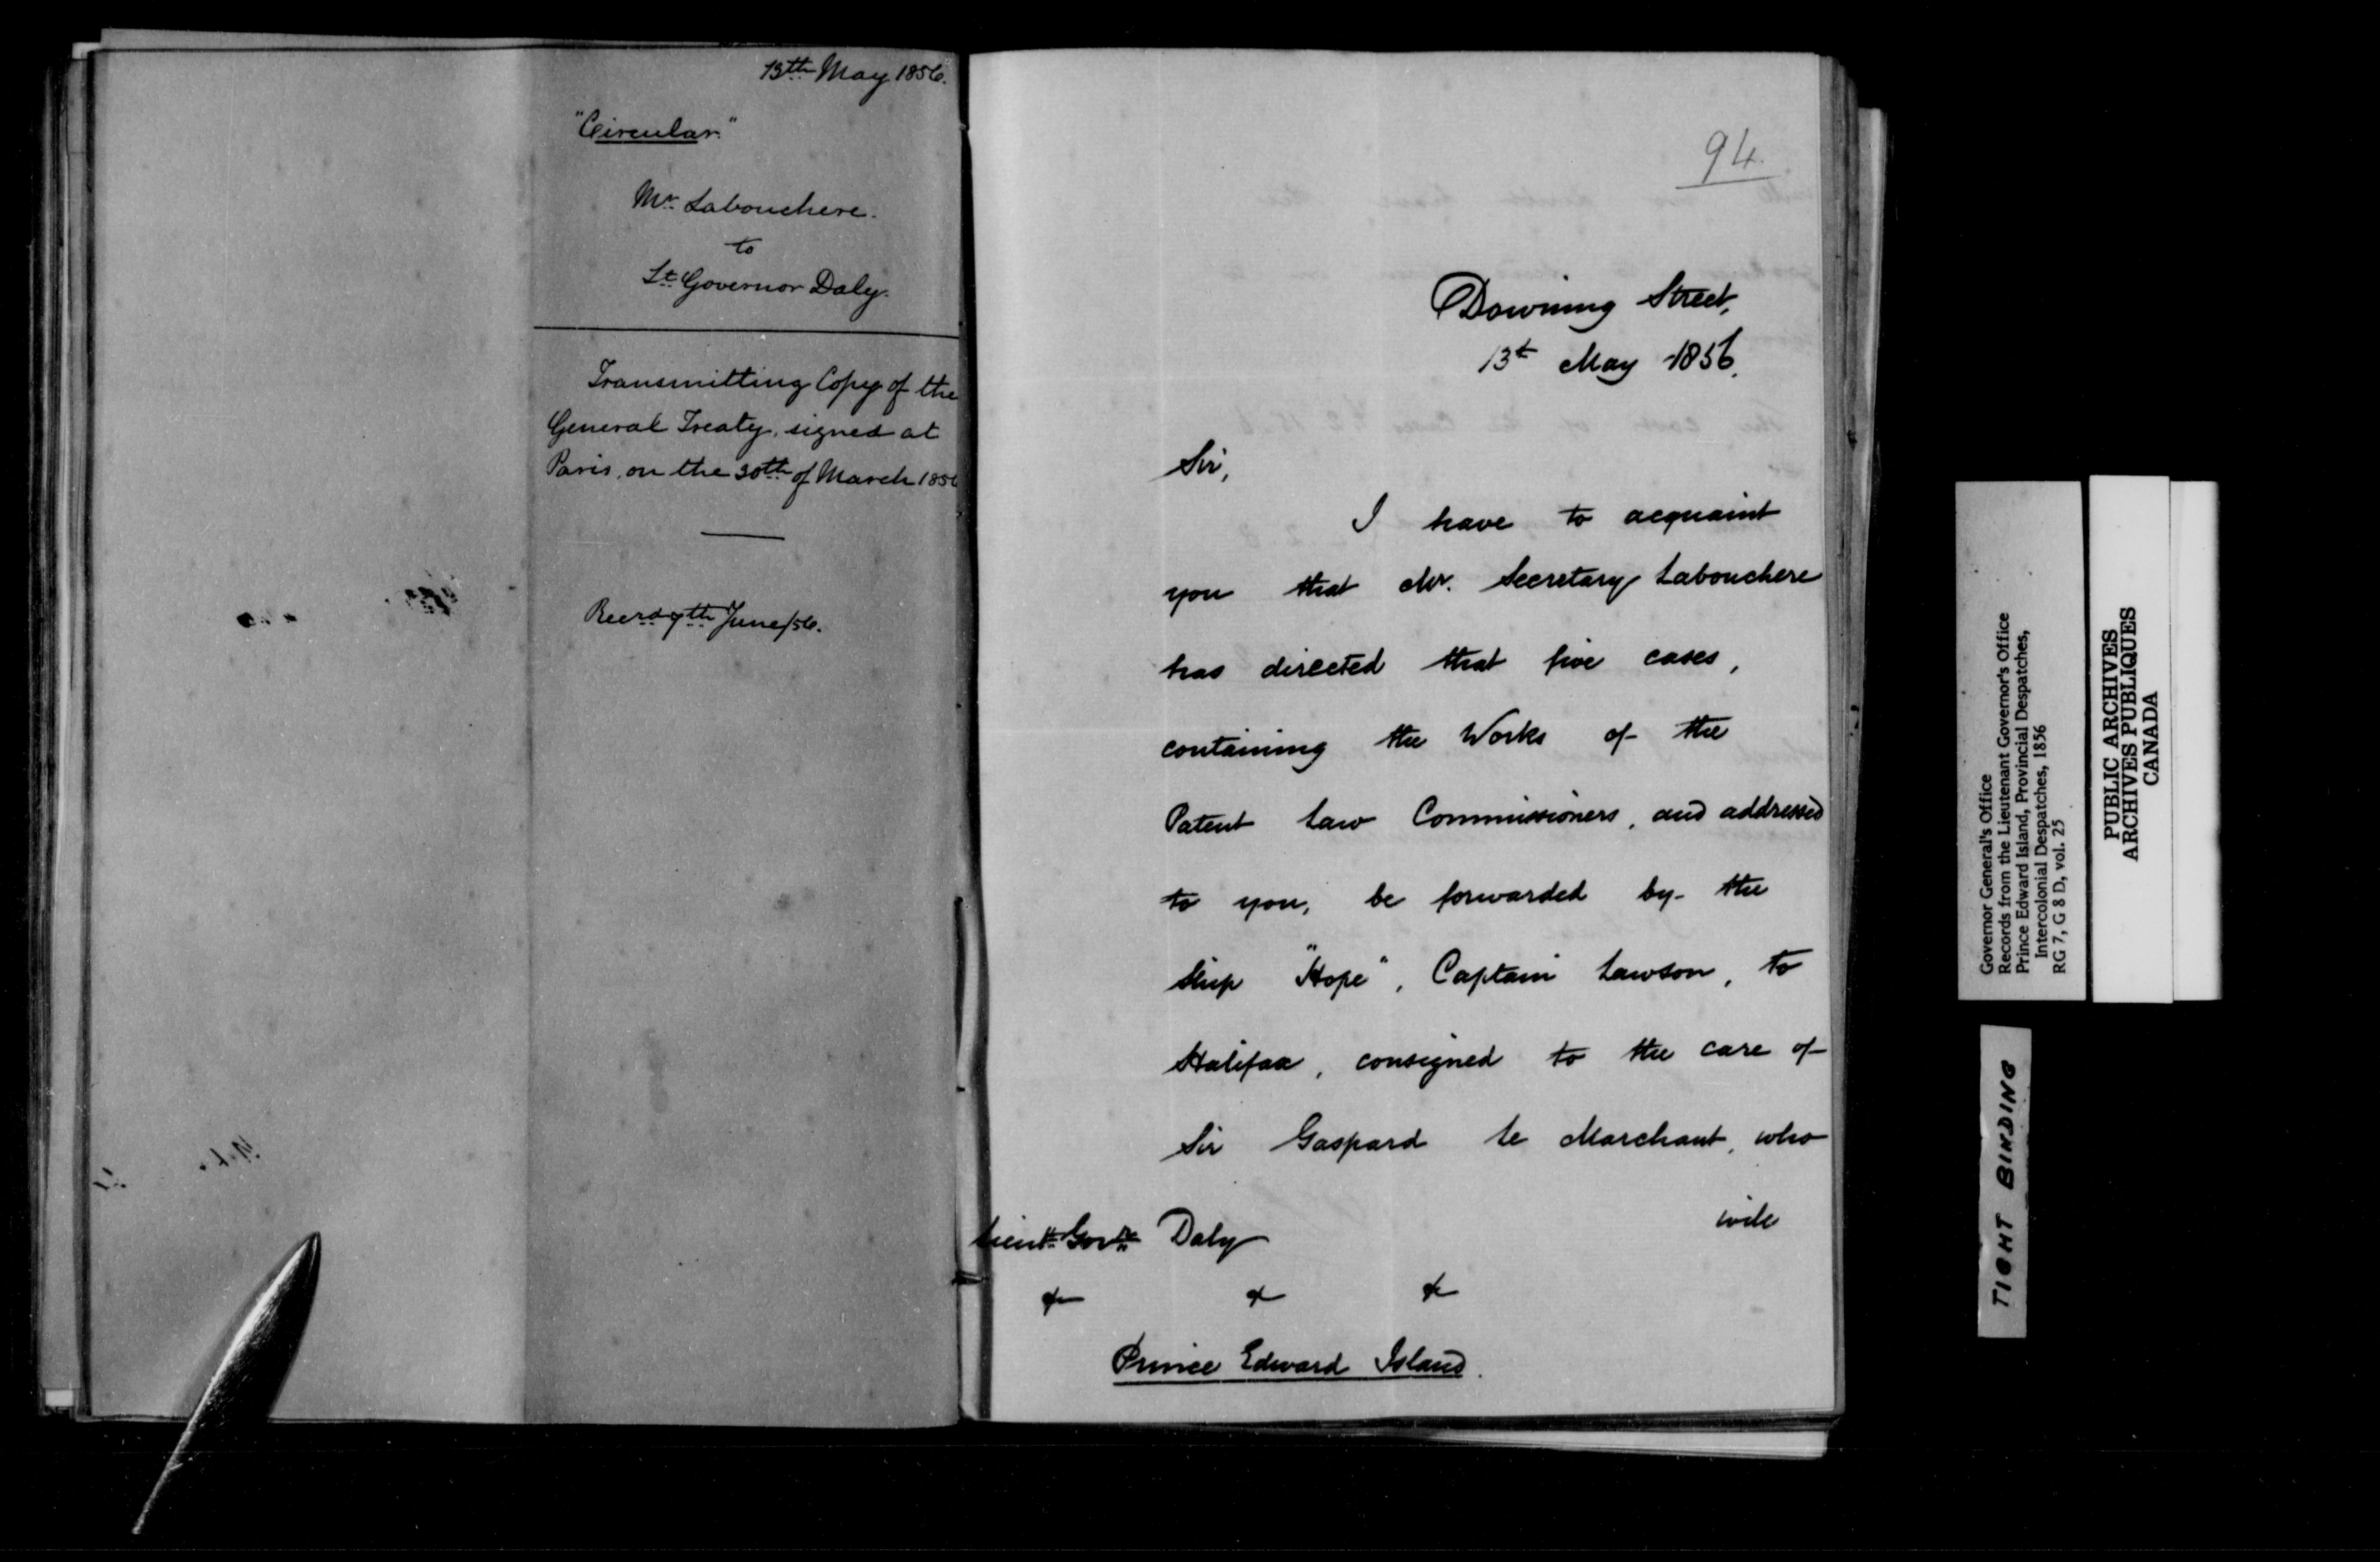 13th May 1856.
"Circular."
Mr. Labouchere.
to
Lt. Governor Daly.
Transmitting Copy of the
General Treaty, signed at
Paris, on the 30th of March 1856
Recvd 7th June/56.
94.
Downing Street,
13th May 1856.
Sir,
I have to acquaint
you that Mr. Secretary Labouchere
has directed that five cases,
containing the Works of the
Patent Law Commissioners, and addressed
to you, be forwarded by the
Ship "Hope", Captain Lawson, to
Halifax, consigned to the care of
Sir Gaspard Le Marchant, who
will
Lieut. Govr. Daly
& & &
Prince Edward Island.
Governor General's Office
Records from the Lieutenant Governor's Office
Prince Edward Island, Provincial Despatches,
Intercolonial Despatches, 1856
RG 7, G 8 D, vol. 25
PUBLIC ARCHIVES
ARCHIVES PUBLIQUES
CANADA
TIGHT BINDING